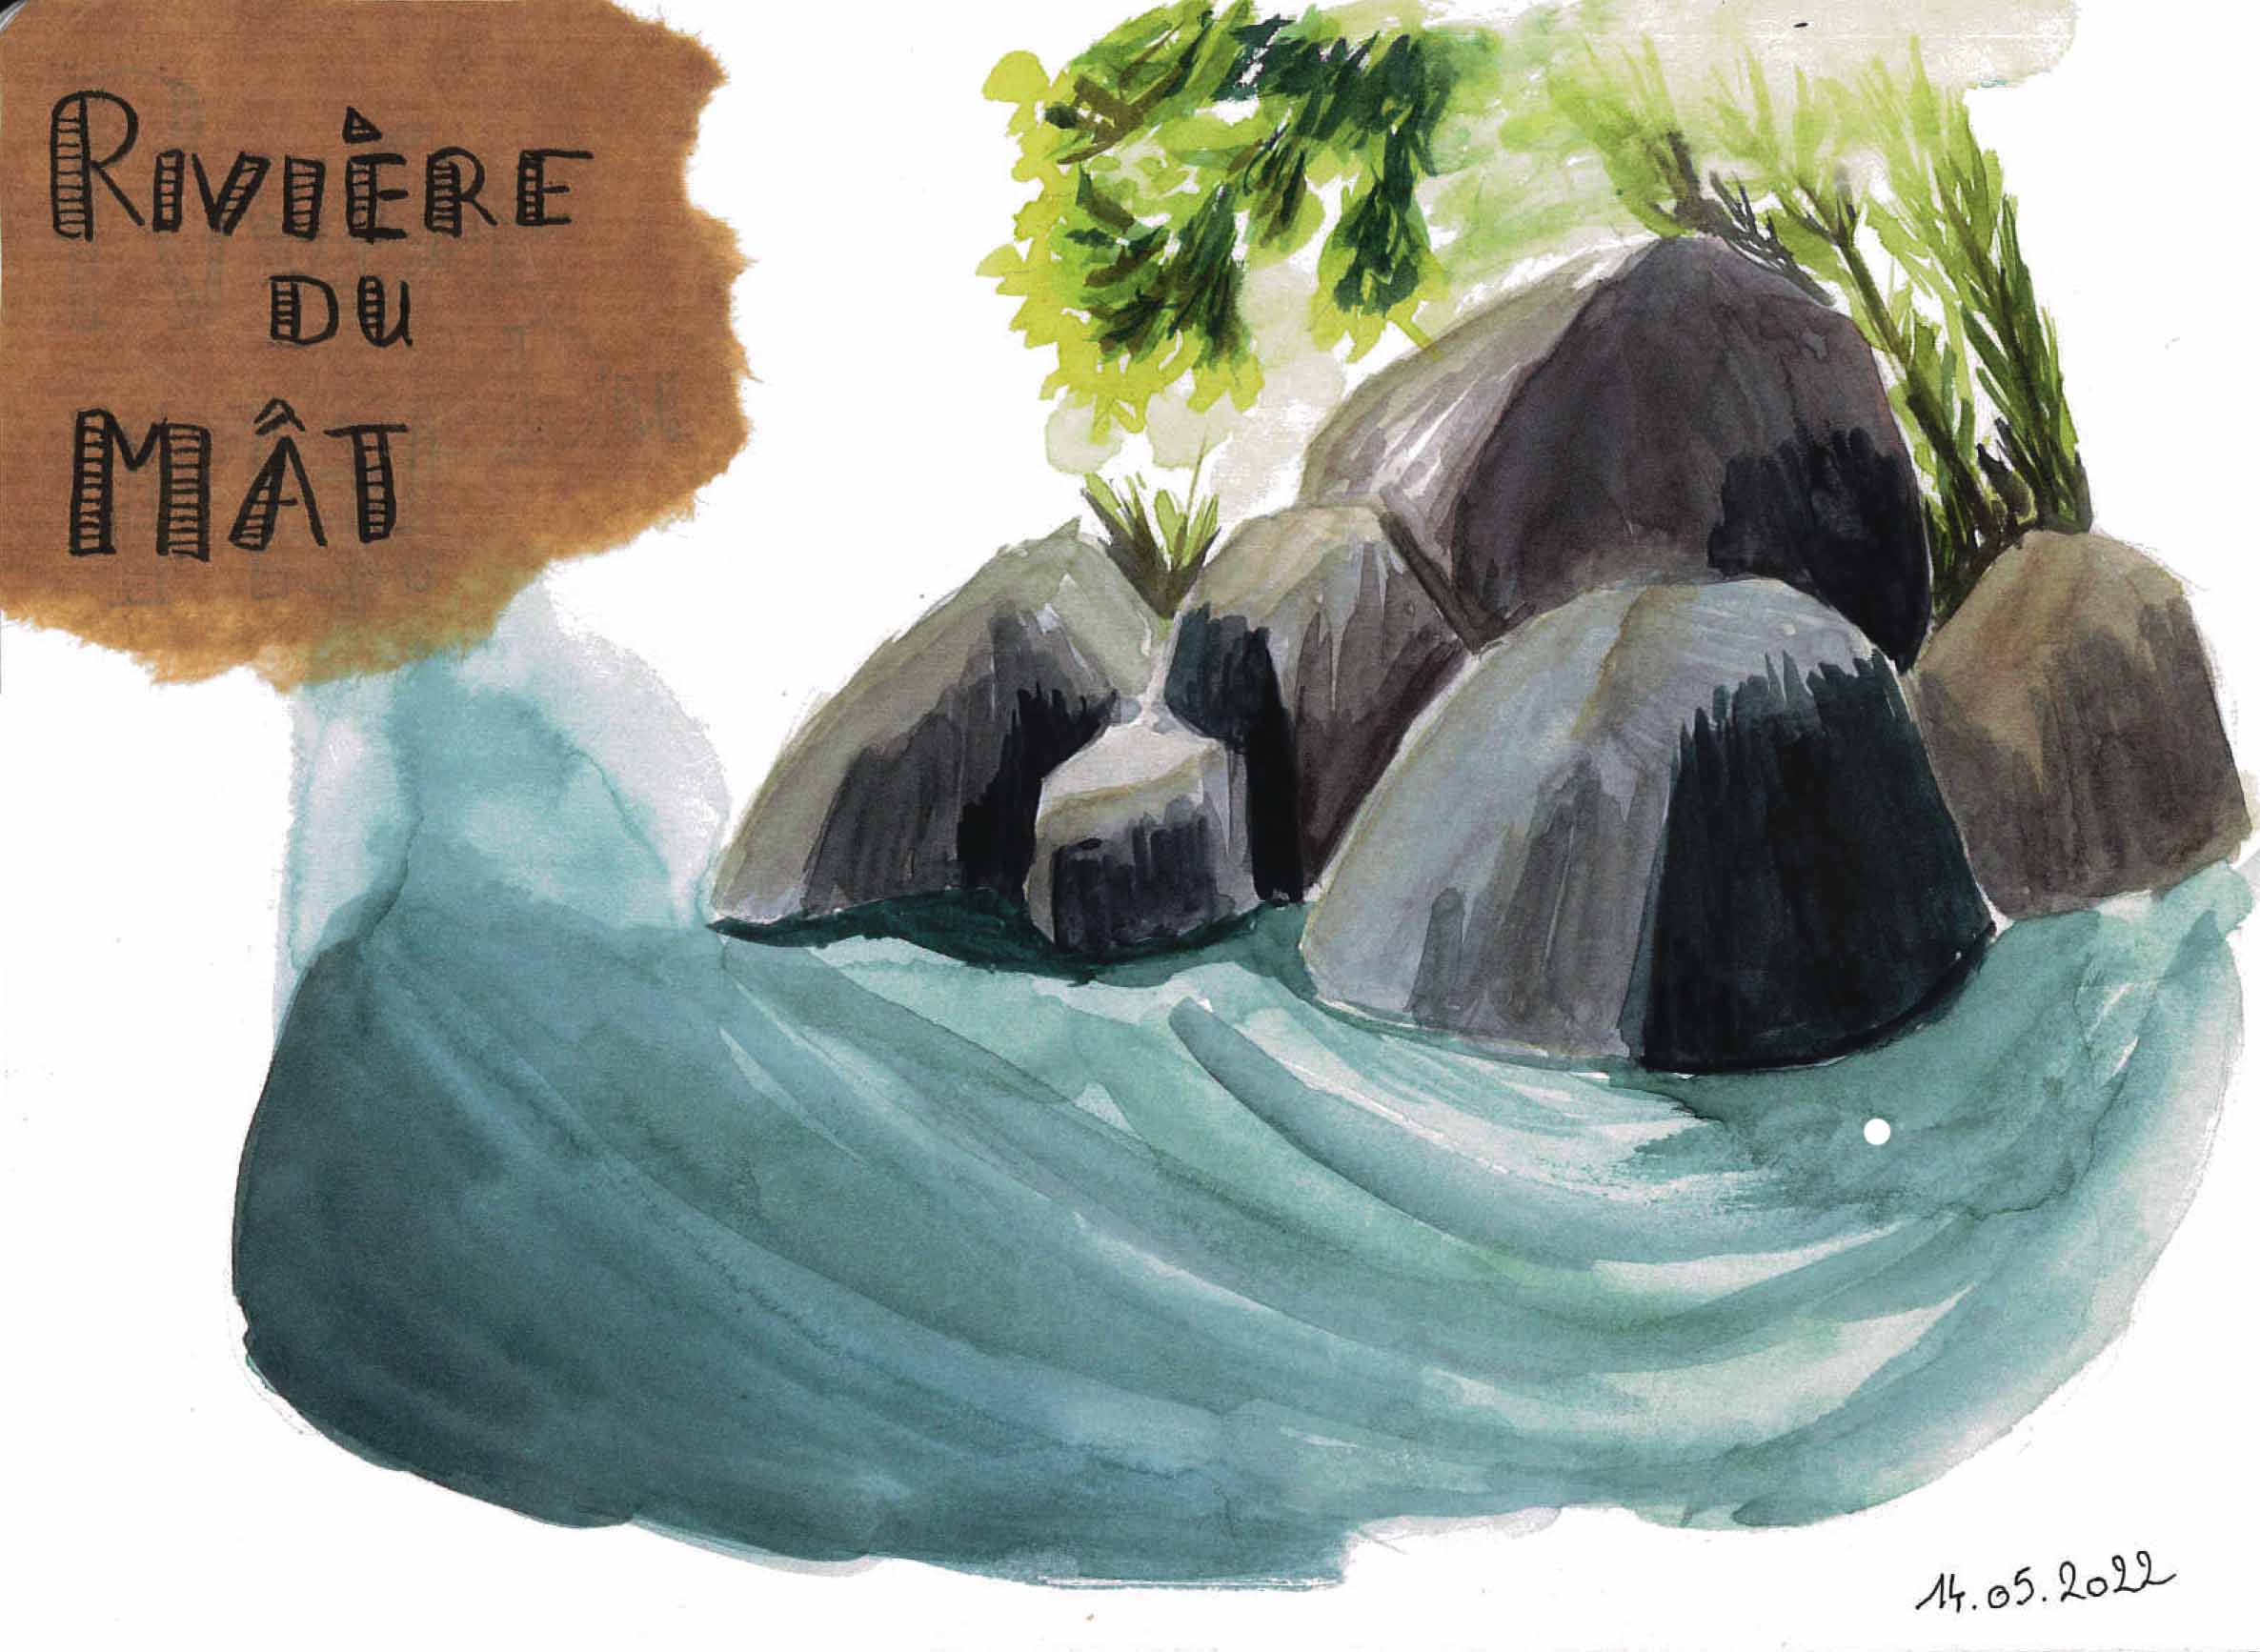 RIVIÈRE
DU
MÂT
14.05.2022